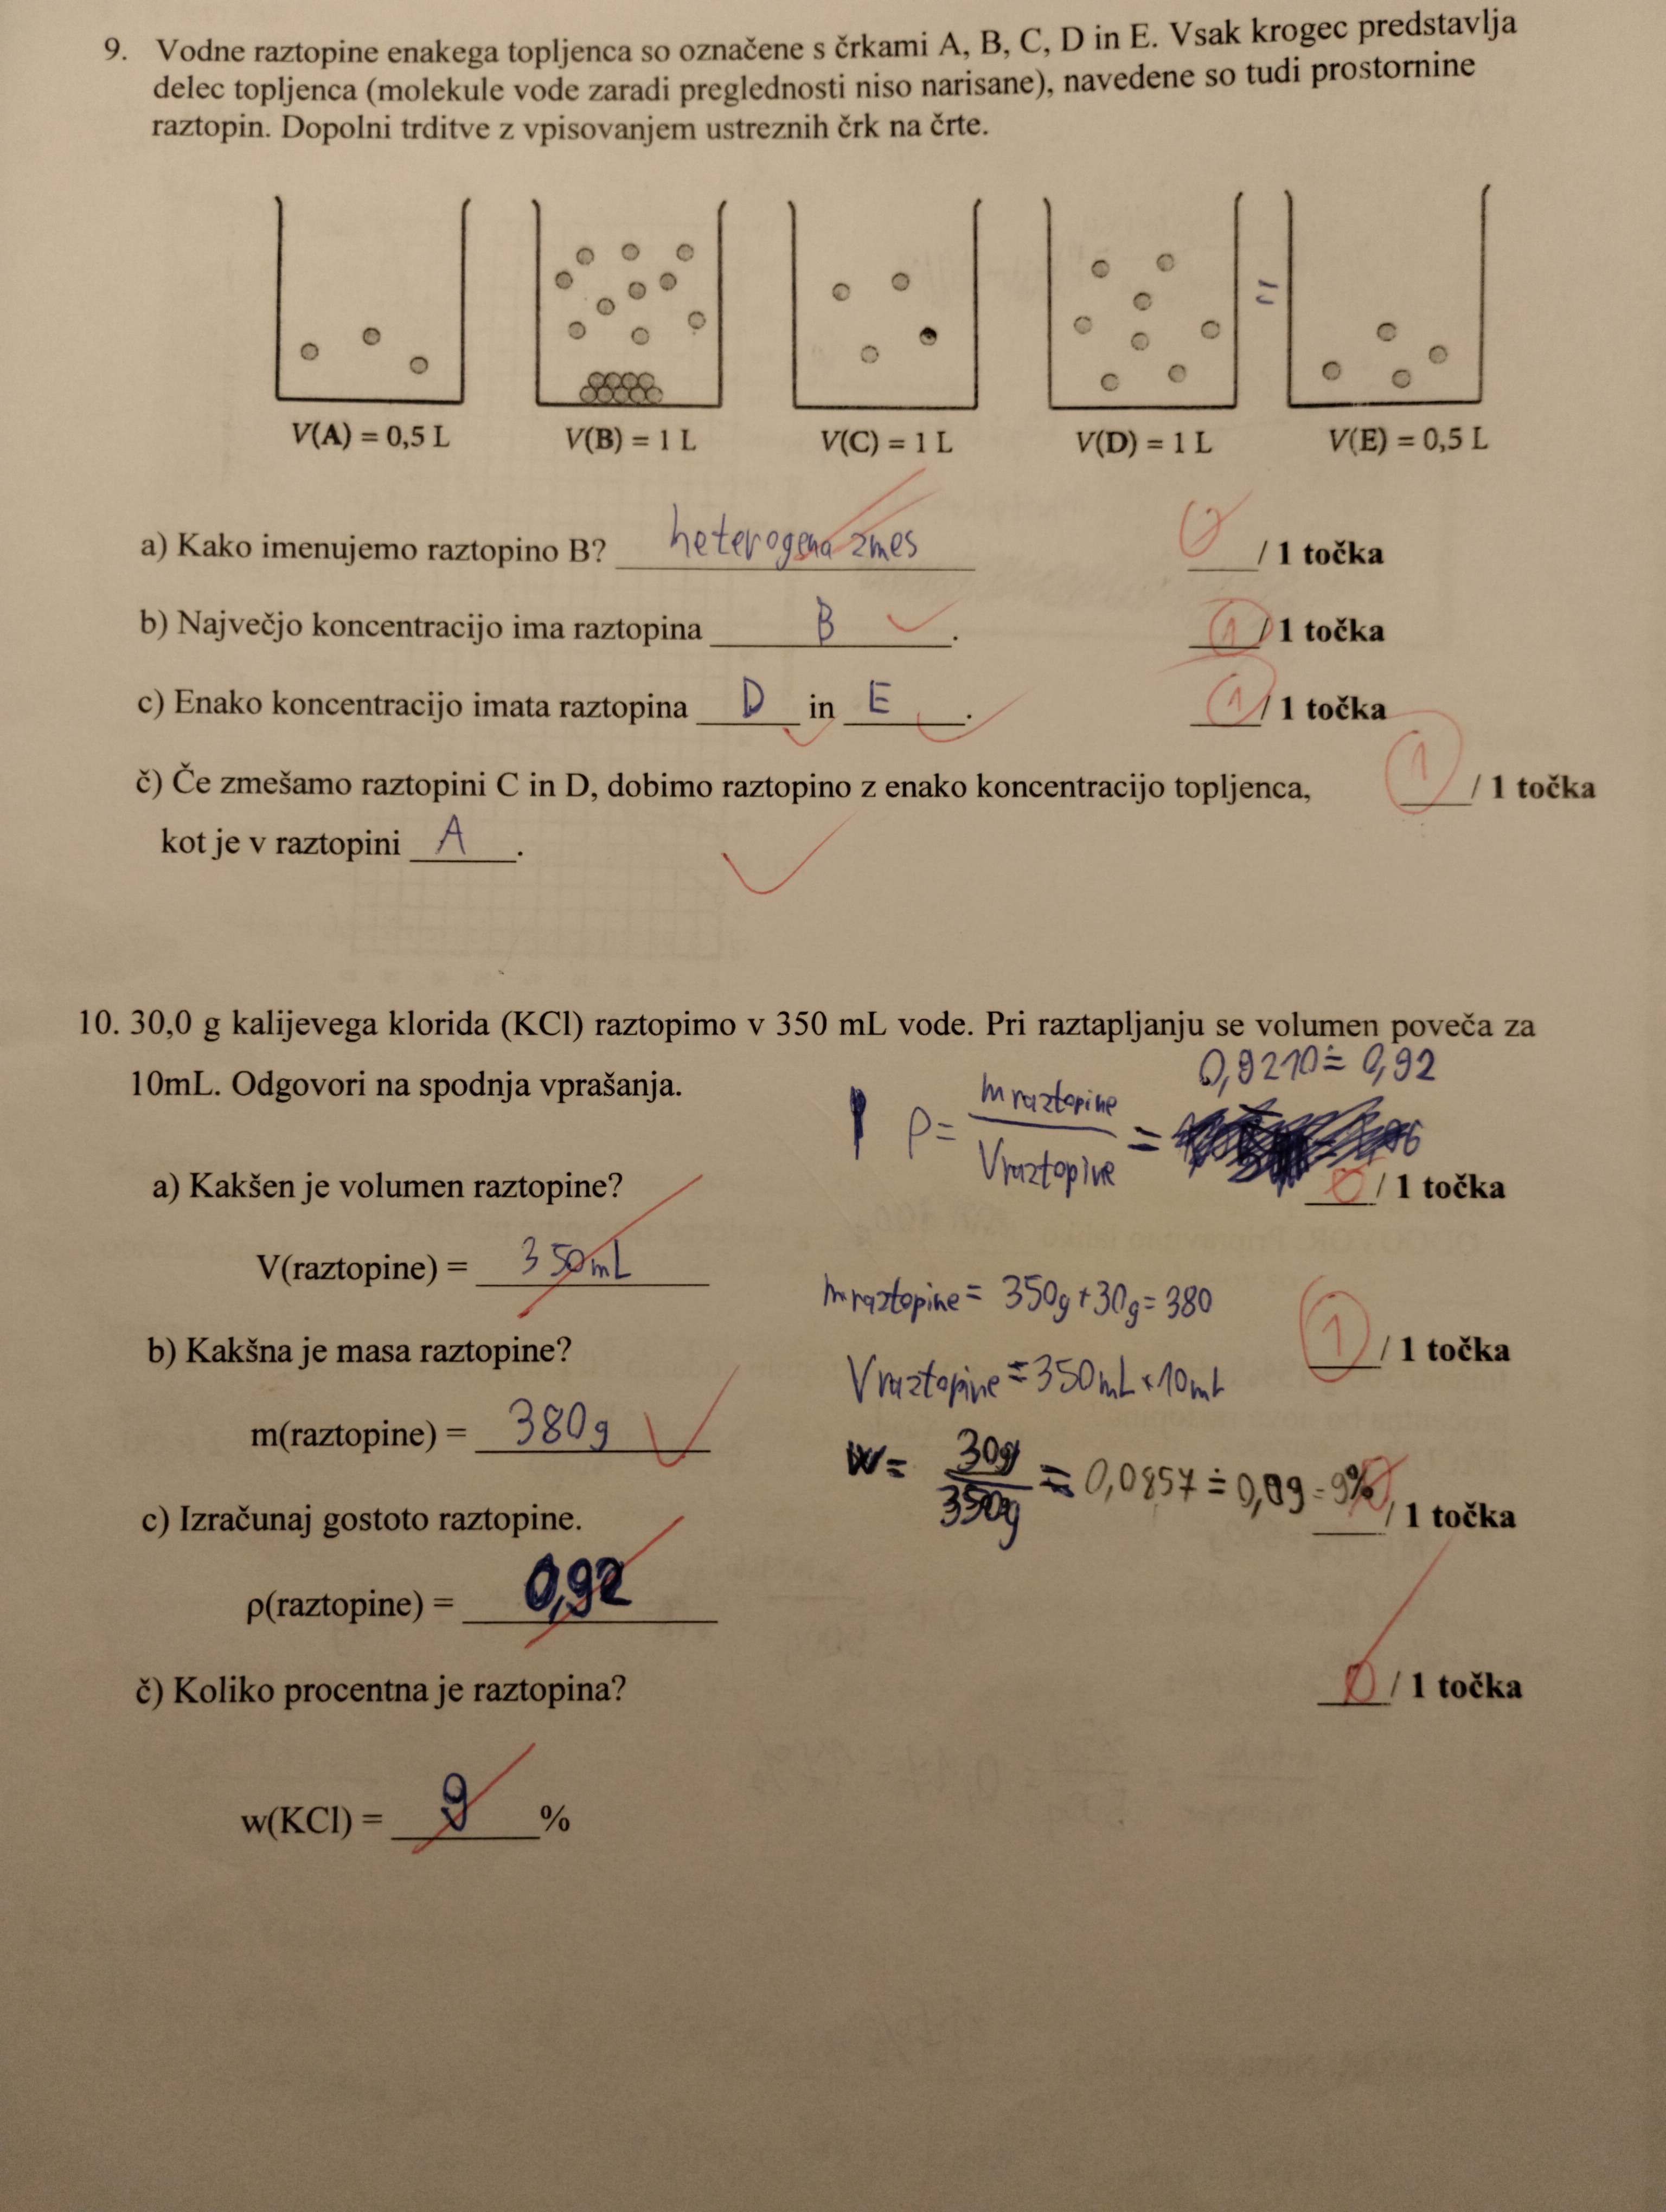 9. Vodne raztopine enakega topljenca so označene s črkami A, B, C, D in E. Vsak krogec predstavlja
delec topljenca (molekule vode zaradi preglednosti niso narisane), navedene so tudi prostornine
raztopin. Dopolni trditve z vpisovanjem ustreznih črk na črte.
=
V(A) = 0,5 L V(B) = 1 L V(C) = 1 L V(D) = 1 L V(E) = 0,5 L
a) Kako imenujemo raztopino B? heterogena zmes 0 / 1 točka
b) Največjo koncentracijo ima raztopina B. 1 / 1 točka
c) Enako koncentracijo imata raztopina D in E. 1 / 1 točka
č) Če zmešamo raztopini C in D, dobimo raztopino z enako koncentracijo topljenca, 1 / 1 točka
kot je v raztopini A.
10. 30,0 g kalijevega klorida (KCl) raztopimo v 350 mL vode. Pri raztapljanju se volumen poveča za
10mL. Odgovori na spodnja vprašanja.
0,9210≐ 0,92
ρ= mraztopine / Vraztopine =
a) Kakšen je volumen raztopine? 0 / 1 točka
V(raztopine) = 350mL
mraztopine = 350g+30g=380
b) Kakšna je masa raztopine? 1 / 1 točka
Vraztopine = 350mL × 10mL
m(raztopine) = 380g
w= 30g / 350g = 0,0857 ≐ 0,09 = 9%
c) Izračunaj gostoto raztopine. 0 / 1 točka
ρ(raztopine) = 0,92
č) Koliko procentna je raztopina? 0 / 1 točka
w(KCl) = 9 %